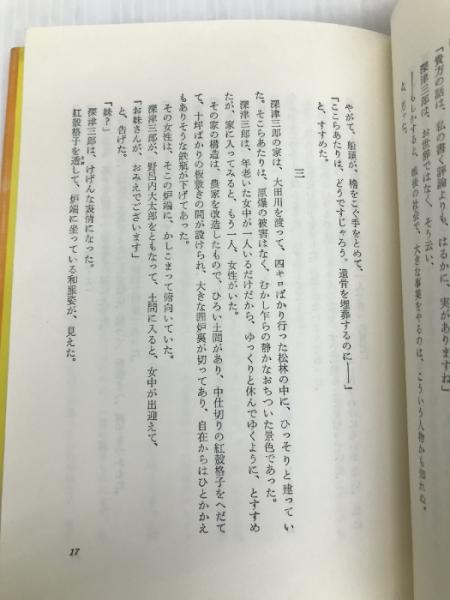 「貴方の話は、私の書く評論よりも、はるかに、実がありますね」
深津三郎は、お世辞ではなく、そう云い、
――もしかすると、戦後の社会で、大きな事業をやるのは、こういう人物かも知れぬ。
やがて、船頭が、櫓をこぐ手をとめて、
「ここらあたりは、どうですじゃろう。遺骨を埋葬するのに――」
と、すすめた。
三
深津三郎の家は、大田川を渡って、四キロばかり行った松林の中に、ひっそりと建ってい
た。そこらあたりは、原爆の被害はなく、むかし乍らの静かなおちついた景色であった。
深津三郎は、年老いた女中が一人いるだけだから、ゆっくりと休んでゆくように、とすすめ
たが、家に入ってみると、もう一人、女性がいた。
その家の構造は、農家を改造したもので、ひろい土間があり、中仕切りの紅殻格子をへだて
て、十坪ばかりの板敷きの間が設けられ、大きな囲炉裏が切ってあり、自在からはひとかかえ
もありそうな鉄瓶が下げてあった。
その女性は、そこの炉端に、かしこまって俯向いていた。
深津三郎が、野呂内大太郎をともなって、土間に入ると、女中が出迎えて、
「お妹さんが、おみえでございます」
と、告げた。
「妹?」
深津三郎は、けげんな表情になった。
紅殻格子を透して、炉端に坐っている和服姿が、見えた。
17